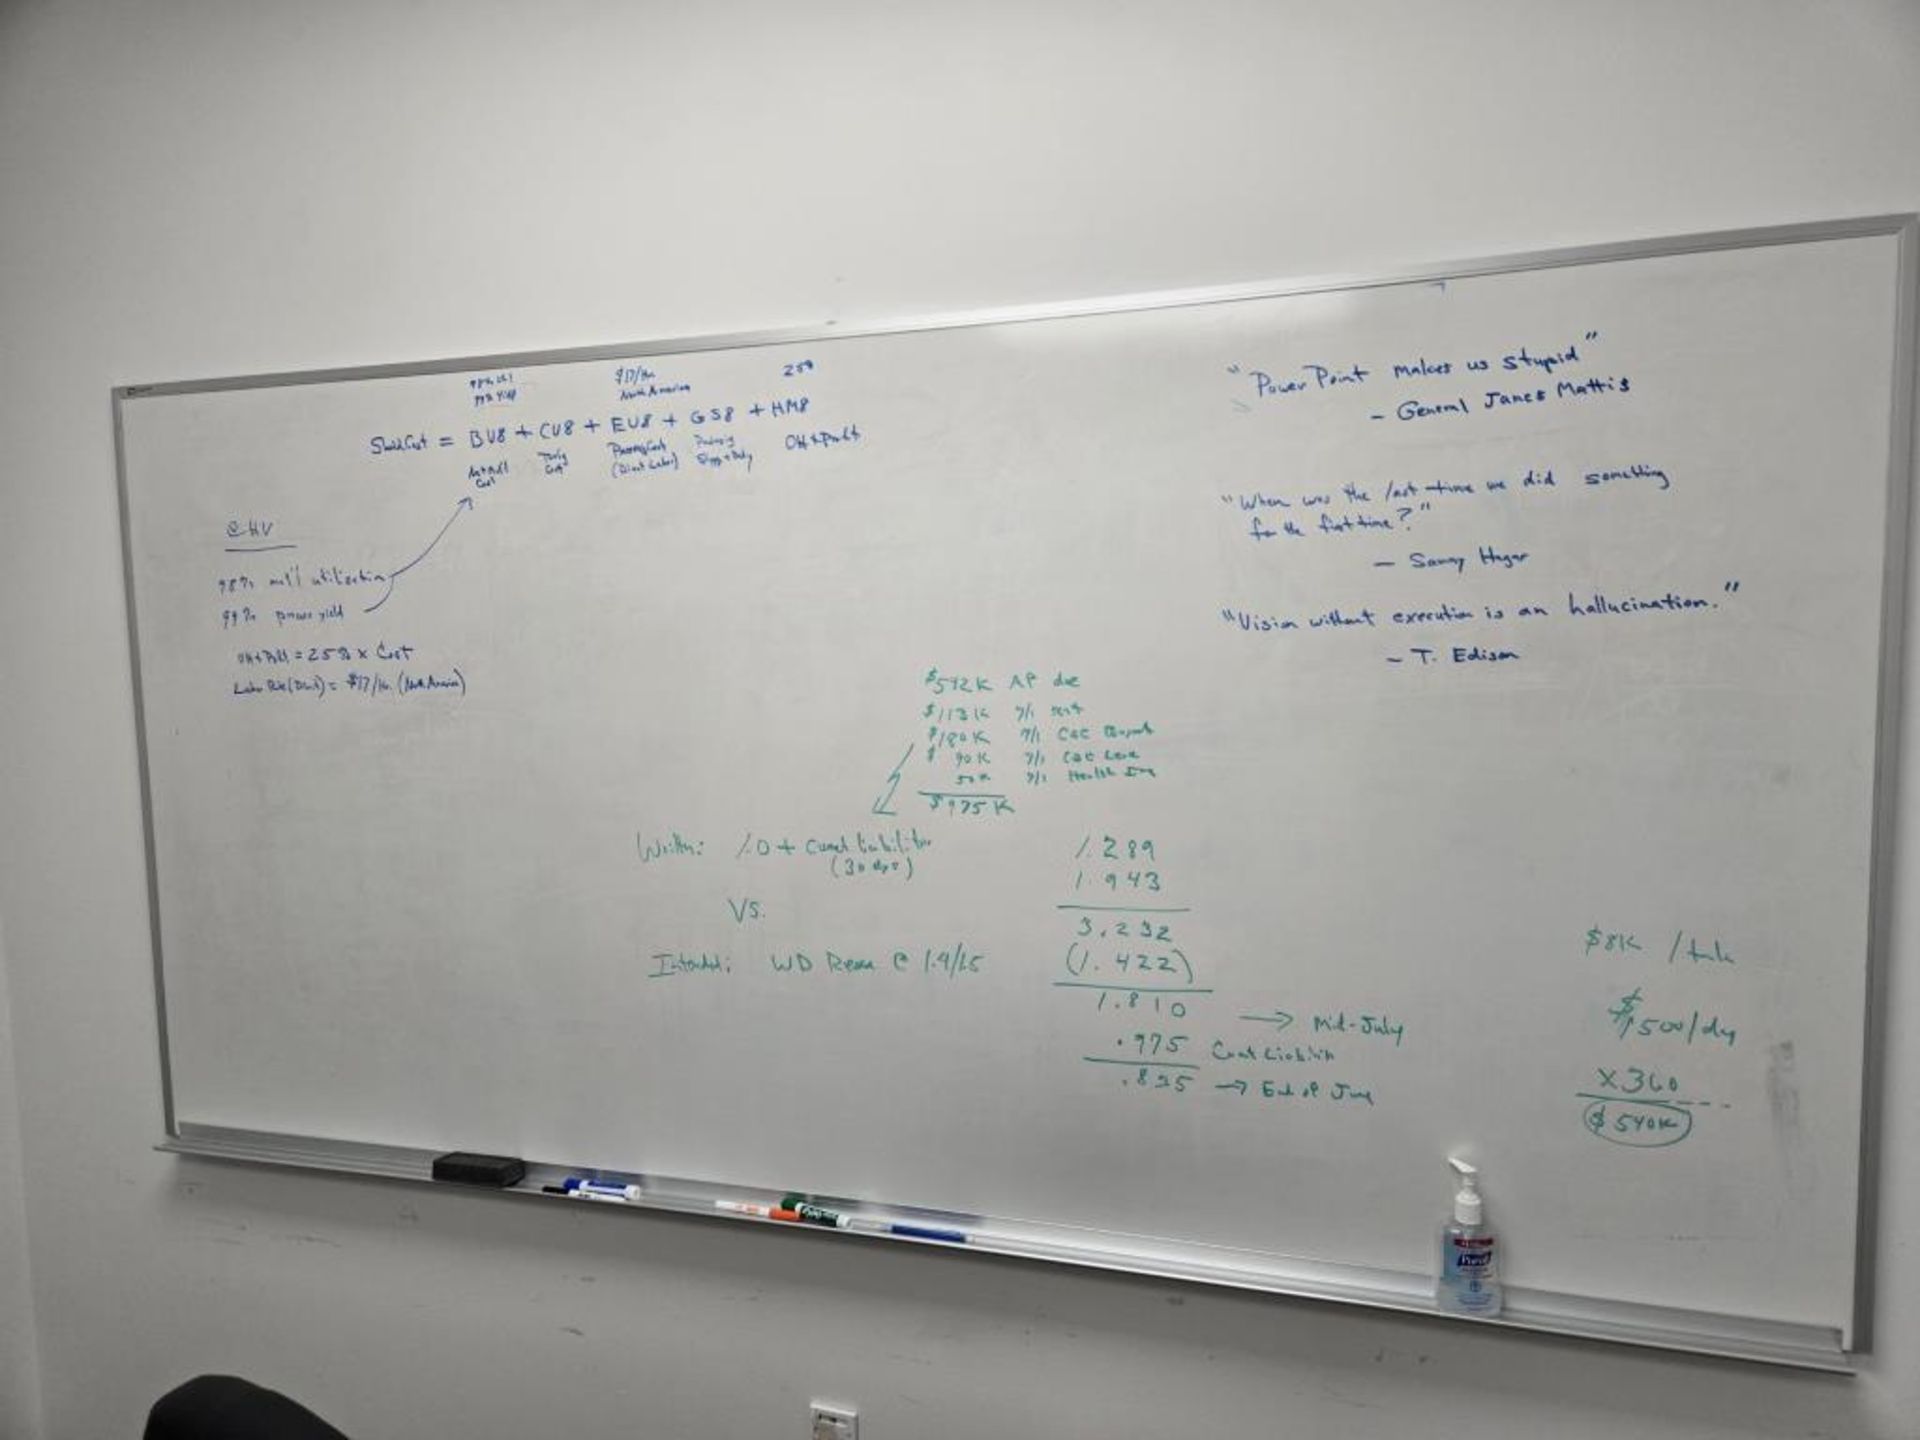 98% util
99% yield
$17/hr.
North America
25%
Should Cost = BU8 + CU8 + EU8 + GS8 + HM8
Mat'l
Cost
Cost
Process Cost
(Direct Labor)
OH + Profit
@ HV
98% mat'l utilization
99% process yield
OH + Profit = 25% x Cost
Labor Rate (Direct) = $17/hr. (North America)
"PowerPoint makes us stupid"
- General James Mattis
"When was the last time we did something
for the first time?"
- Sammy Hagar
"Vision without execution is an hallucination."
- T. Edison
$592K AP due
$113K 7/1 rent
$180K 7/1
$ 90K 7/1
50K 7/1 Health Ins
$975K
Written: 1.0 + Current liabilities
(30 days)
VS.
Intended: WD @ 1.4/1.5
1.289
1.943
3.232
(1.422)
1.810 → Mid-July
.975 Current Liabilities
.835 → End of June
$8K /
$1,500/day
x360
$540K
Purell